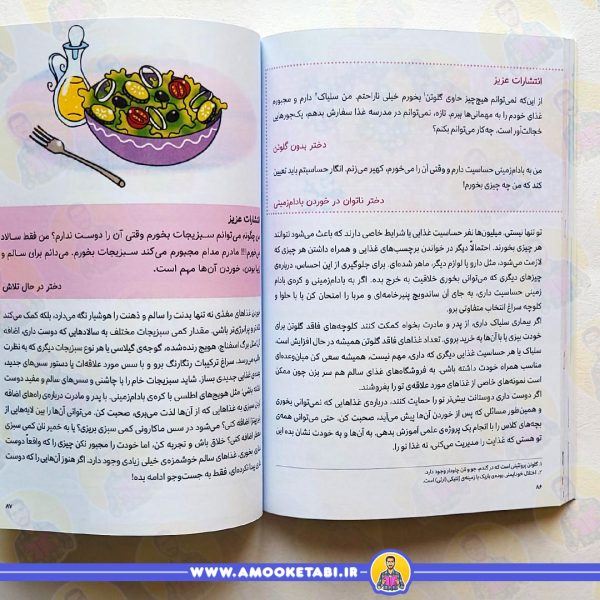 انتشارات عزیز
از این‌که نمی‌توانم هیچ‌چیز حاوی گلوتن۱ بخورم خیلی ناراحتم. من سلیاک۲ دارم و مجبورم
غذای خودم را به مهمانی‌ها ببرم. تازه، نمی‌توانم در مدرسه غذا سفارش بدهم، یک‌جورهایی
خجالت‌آور است. چه‌کار می‌توانم بکنم؟
دختر بدون گلوتن
من به بادام‌زمینی حساسیت دارم و وقتی آن را می‌خورم، کهیر می‌زنم. انگار حساسیتم باید تعیین
کند که من چه چیزی بخورم!
دختر ناتوان در خوردن بادام‌زمینی
تو تنها نیستی. میلیون‌ها نفر حساسیت غذایی یا شرایط خاصی دارند که باعث می‌شود نتوانند
هر چیزی بخورند. احتمالاً دیگر در خواندن برچسب‌های غذایی و همراه داشتن هر چیزی که
لازمت می‌شود، مثل دارو یا لوازم دیگر، ماهر شده‌ای. برای جلوگیری از این احساس، درباره‌ی
چیزهای دیگری که می‌توانی بخوری خلاقیت به خرج بده. اگر به بادام‌زمینی و کره‌ی بادام
زمینی حساسیت داری، به جای آن ساندویچ پنیرخامه‌ای و مربا را امتحان کن یا با حلوا و
کلوچه سراغ انتخاب متفاوتی برو.
اگر بیماری سلیاک داری، از پدر و مادرت بخواه کمکت کنند کلوچه‌های فاقد گلوتن برای
خودت بپزی یا با آن‌ها به خرید بروی. تعداد غذاهای فاقد گلوتن همیشه در حال افزایش است.
سلیاک یا هر حساسیت غذایی دیگری که داری، مهم نیست، همیشه سعی کن میان‌وعده‌ای
مناسب همراه خودت داشته باشی. به فروشگاه‌های غذای سالم هم سر بزن چون ممکن
است نمونه‌های خاصی از غذاهای مورد علاقه‌ی تو را بفروشند.
اگر دوست داری دوستانت بیش‌تر تو را حمایت کنند، درباره‌ی غذاهایی که نمی‌توانی بخوری
و همین‌طور مسائلی که پس از خوردن آن‌ها پیش می‌آید، صحبت کن. حتی می‌توانی همه‌ی
بچه‌های کلاس را با انجام یک پروژه‌ی علمی آموزش بدهی. به آن‌ها و به خودت نشان بده این
تو هستی که غذایت را مدیریت می‌کنی، نه غذا تو را.
۱. گلوتن پروتئینی است که در گندم، جو و نان چاودار وجود دارد.
۲. اختلال خودایمنی روده‌ی باریک با زمینه‌ی ژنتیکی (ارثی) است.
۸۶
انتشارات عزیز
چگونه می‌توانم سبزیجات بخورم وقتی آن را دوست ندارم؟ من فقط سالاد
می‌خورم!!! مادرم مدام مجبورم می‌کند سبزیجات بخورم. می‌دانم برای سالم و
زیبا بودن، خوردن آن‌ها مهم است.
دختر در حال تلاش
خوردن غذاهای مغذی نه تنها بدنت را سالم و ذهنت را هوشیار نگه می‌دارد، بلکه کمک می‌کند
پرانرژی‌تر باشی. مقدار کمی سبزیجات مختلف به سالادهایی که دوست داری، اضافه
مثل برگ اسفناج، هویج رنده‌شده، گوجه‌ی گیلاسی یا هر نوع سبزیجات دیگری که به نظرت
می‌رسد. سراغ ترکیبات رنگارنگ برو و با سس مورد علاقه‌ات یا دستور سس‌های جدید،
غذایی جدیدی بساز. شاید سبزیجات خام را با چاشنی و سس‌های سالم و مفید دوست
داشته باشی؛ مثل هویج‌های اطلسی با کره‌ی بادام‌زمینی. با پدر و مادرت درباره‌ی راه‌های اضافه
سبزی به غذاهایی که از آن‌ها لذت می‌بری، صحبت کن. می‌توانی آن‌ها را بین لایه‌هایی از
پیتزا اضافه کنی؟ می‌شود در سس ماکارونی کمی سبزی بریزی؟ یا به خمیر نان کمی سبزی
اضافه کنی؟ خلاق باش و تجربه کن، اما خودت را مجبور نکن چیزی را که واقعاً دوست
بخوری. غذاهای سالم خوشمزه‌ی خیلی زیادی وجود دارد. اگر هنوز آن‌هایی را که دوست
پیدا نکرده‌ای، فقط به جست‌وجو ادامه بده!
۸۷
WWW.AMOOKETABI.IR